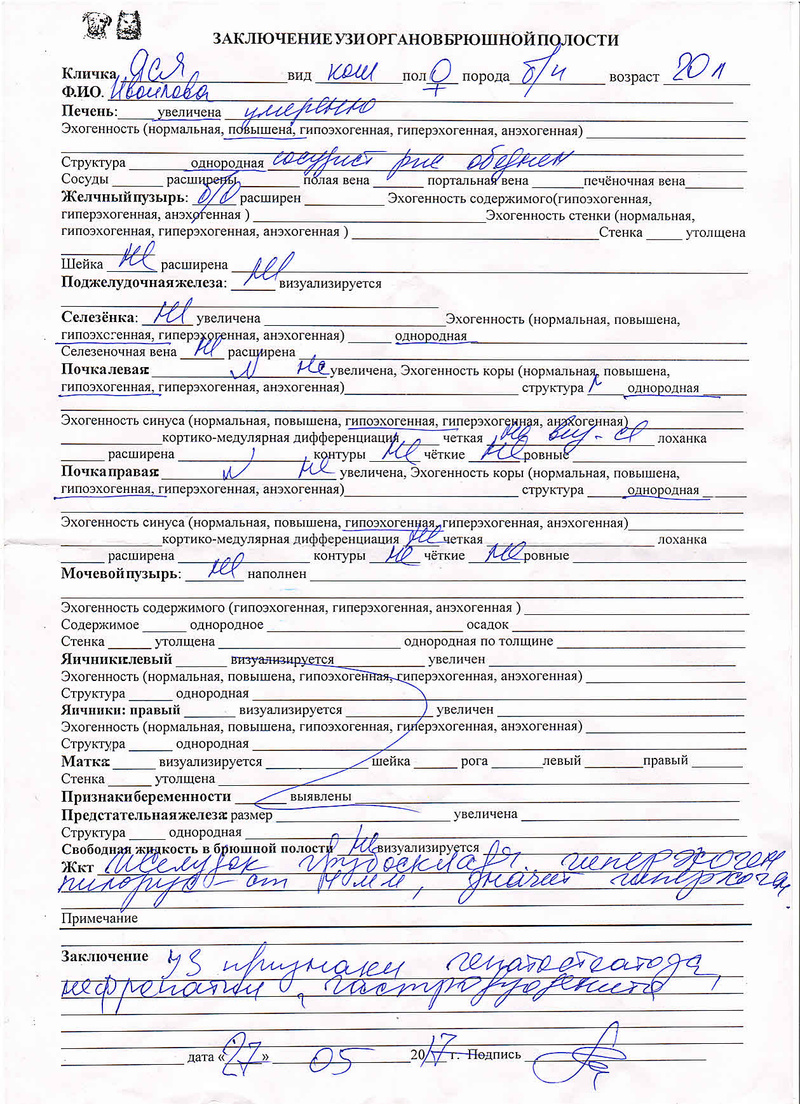 ЗАКЛЮЧЕНИЕ УЗИ ОРГАНОВ БРЮШНОЙ ПОЛОСТИ
Кличка Яся вид кош пол ♀ порода б/п возраст 20 л
Ф.И.О.
Печень: увеличена умеренно
Эхогенность (нормальная, повышена, гипоэхогенная, гиперэхогенная, анэхогенная)
Структура однородная сосудист рис обеднен
Сосуды расширены полая вена портальная вена печёночная вена
Желчный пузырь: б/о расширен Эхогенность содержимого(гипоэхогенная,
гиперэхогенная, анэхогенная ) Эхогенность стенки (нормальная,
гипоэхогенная, гиперэхогенная, анэхогенная ) Стенка утолщена
Шейка не расширена
Поджелудочная железа: не визуализируется
Селезёнка: не увеличена Эхогенность (нормальная, повышена,
гипоэхогенная, гиперэхогенная, анэхогенная) однородная
Селезеночная вена не расширена
Почка левая: N не увеличена, Эхогенность коры (нормальная, повышена,
гипоэхогенная, гиперэхогенная, анэхогенная) структура однородная
Эхогенность синуса (нормальная, повышена, гипоэхогенная, гиперэхогенная, анэхогенная)
кортико-медулярная дифференциация четкая не виз-ся лоханка
расширена контуры не чёткие не ровные
Почка правая: N не увеличена, Эхогенность коры (нормальная, повышена,
гипоэхогенная, гиперэхогенная, анэхогенная) структура однородная
Эхогенность синуса (нормальная, повышена, гипоэхогенная, гиперэхогенная, анэхогенная)
кортико-медулярная дифференциация не четкая лоханка
расширена контуры не чёткие не ровные
Мочевой пузырь: не наполнен
Эхогенность содержимого (гипоэхогенная, гиперэхогенная, анэхогенная )
Содержимое однородное осадок
Стенка утолщена однородная по толщине
Яичники: левый визуализируется увеличен
Эхогенность (нормальная, повышена, гипоэхогенная, гиперэхогенная, анэхогенная)
Структура однородная
Яичники: правый визуализируется увеличен
Эхогенность (нормальная, повышена, гипоэхогенная, гиперэхогенная, анэхогенная)
Структура однородная
Матка: визуализируется шейка рога левый правый
Стенка утолщена
Признаки беременности выявлены
Предстательная железа: размер увеличена
Структура однородная
Свободная жидкость в брюшной полости не визуализируется
Жкт Желудок грубосклад. гиперэхоген
пилорус – от 4 мм, значит гиперэхоген
Примечание
Заключение УЗ признаки гепатостеатоза,
нефропатии, гастродуоденита
дата «27» 05 2017 г. Подпись